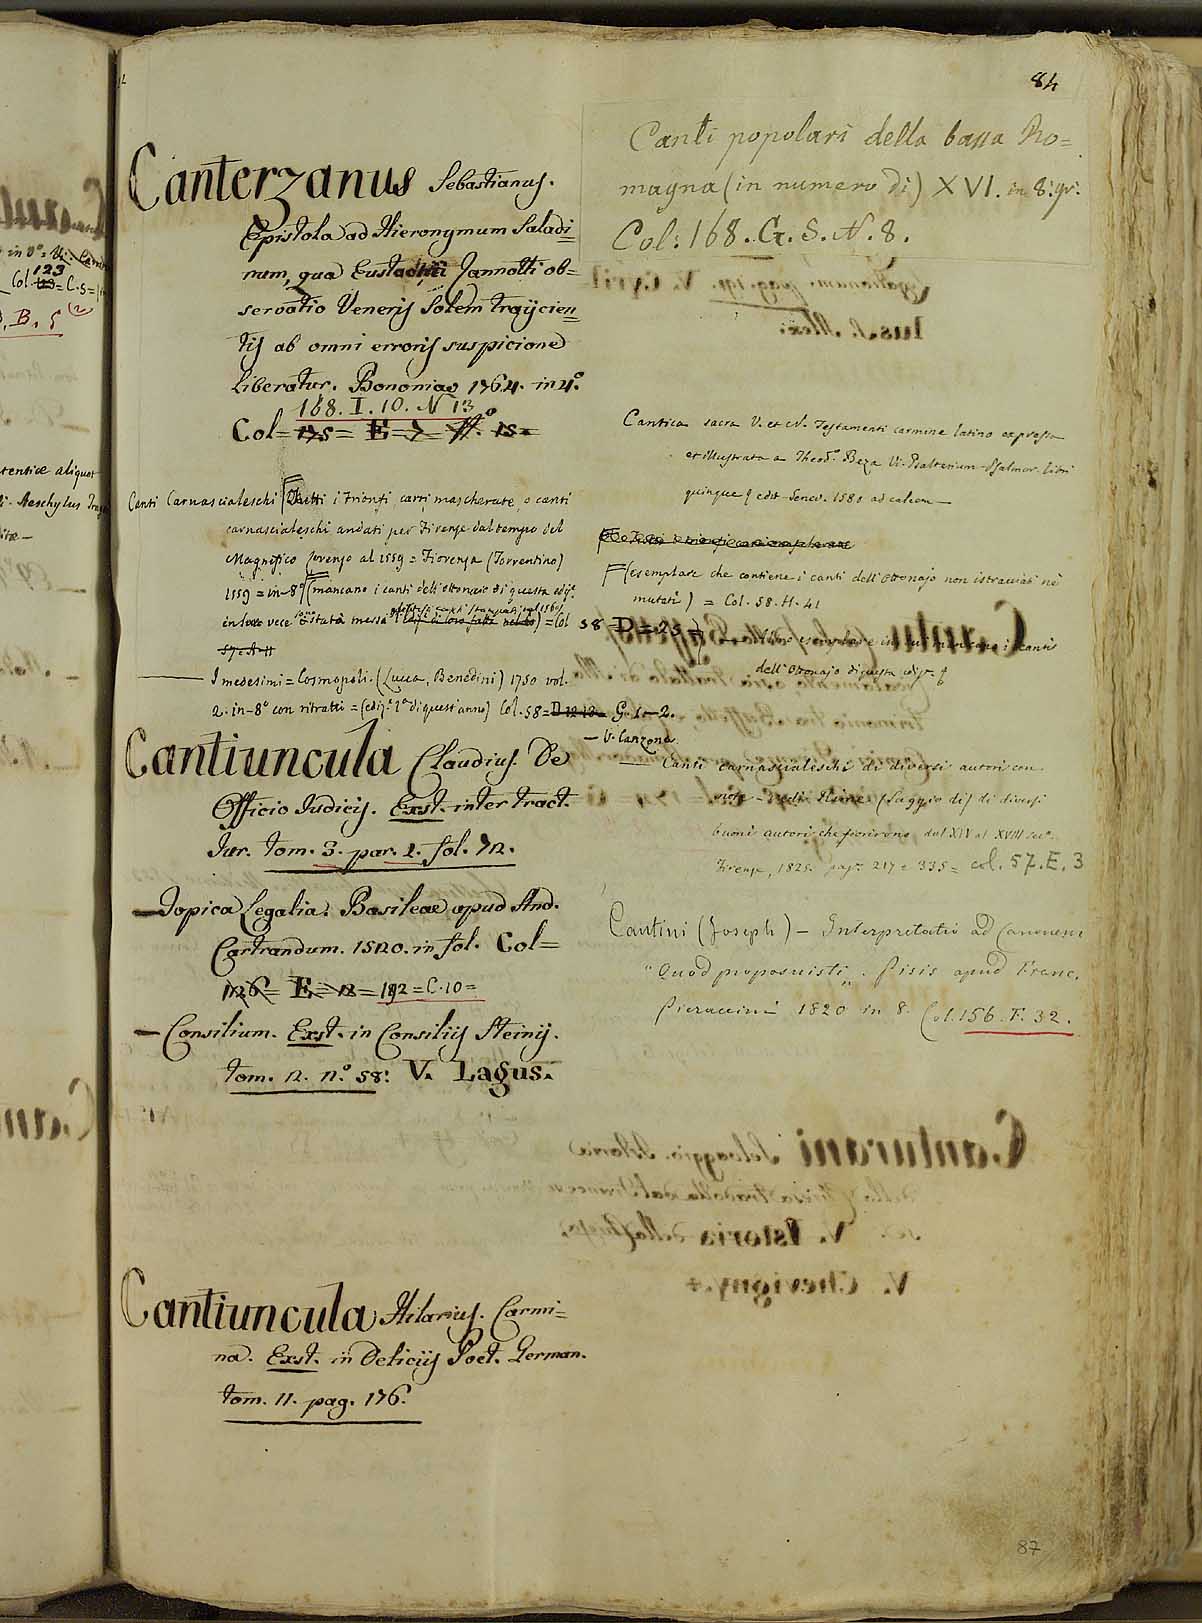 84
Canterzanus Sebastianus.
Epistola ad Hieronymum Saladi=
num, qua Eustachii Zannotti ob=
servatio Veneris Solem traijcien=
tis ab omni erroris suspicione
liberatur. Bononiae 1764. in 4.º
168. I. 10. N 13
Col= 175= E= 7= N.º 15=
Canti Carnascialeschi Tutti i trionfi carri mascherate, o canti
carnascialeschi andati per Firenze dal tempo del
Magnifico Lorenzo al 1559 = Fiorenza (Torrentino)
1559 = in-8º (mancano i canti dell'Ottonajo di questa ediz.
in loro vece è stata messa = Col 58 = D = 25 =
57. A. 11
— I medesimi = Cosmopoli. (Lucca, Benedini) 1750 vol.
2. in-8º con ritratti = (ediz. 1ª di quest'anno) Col. 58= D 12 13= G. 1.-2.
— V. Canzona
Cantiuncula Claudius. De
Officio Iudicis. Exst. inter tract.
Iur. tom. 3. par. 1. fol. 72.
— Topica Legalia. Basileae apud And.
Cartrandum. 1520. in fol. Col=
126= E= 12= 192= C. 10=
— Consilium. Exst. in Consiliis Steinij.
tom. 2. n.º 58: V. Lagus.
Cantiuncula Hilarius. Carmi=
na. Exst. in Deliciis Poet. German.
tom. 11. pag. 176.
Canti popolari della bassa Ro=
magna (in numero di) XVI. in 8.º gr.
Col: 168. G. S. N. 8.
Cantica sacra V. et N. Testamenti carmine latino expressa
et illustrata a Theod. Beza V. Psalterium-Psalmor. libri
quinque edit. Genev. 1580 ad calcem —
(esemplare che contiene i canti dell'Ottonajo non istracciati nè
mutati) = Col. 58. H. 41
Altro esemplare in cui mancano i canti
dell'Ottonajo di questa ediz.
— Canti carnascialeschi di diversi autori con
note - Vedi Rime (Saggio di) di diversi
buoni autori che fiorirono dal XIV al XVIII sec.
Firenze, 1825. pag. 217 e 335= col. 57. E. 3
Cantini (Joseph) — Interpretatio ad Canonem
"Quod proposuisti". Pisis apud Franc.
Pieraccini 1820 in 8. Col. 156. F. 32.
87